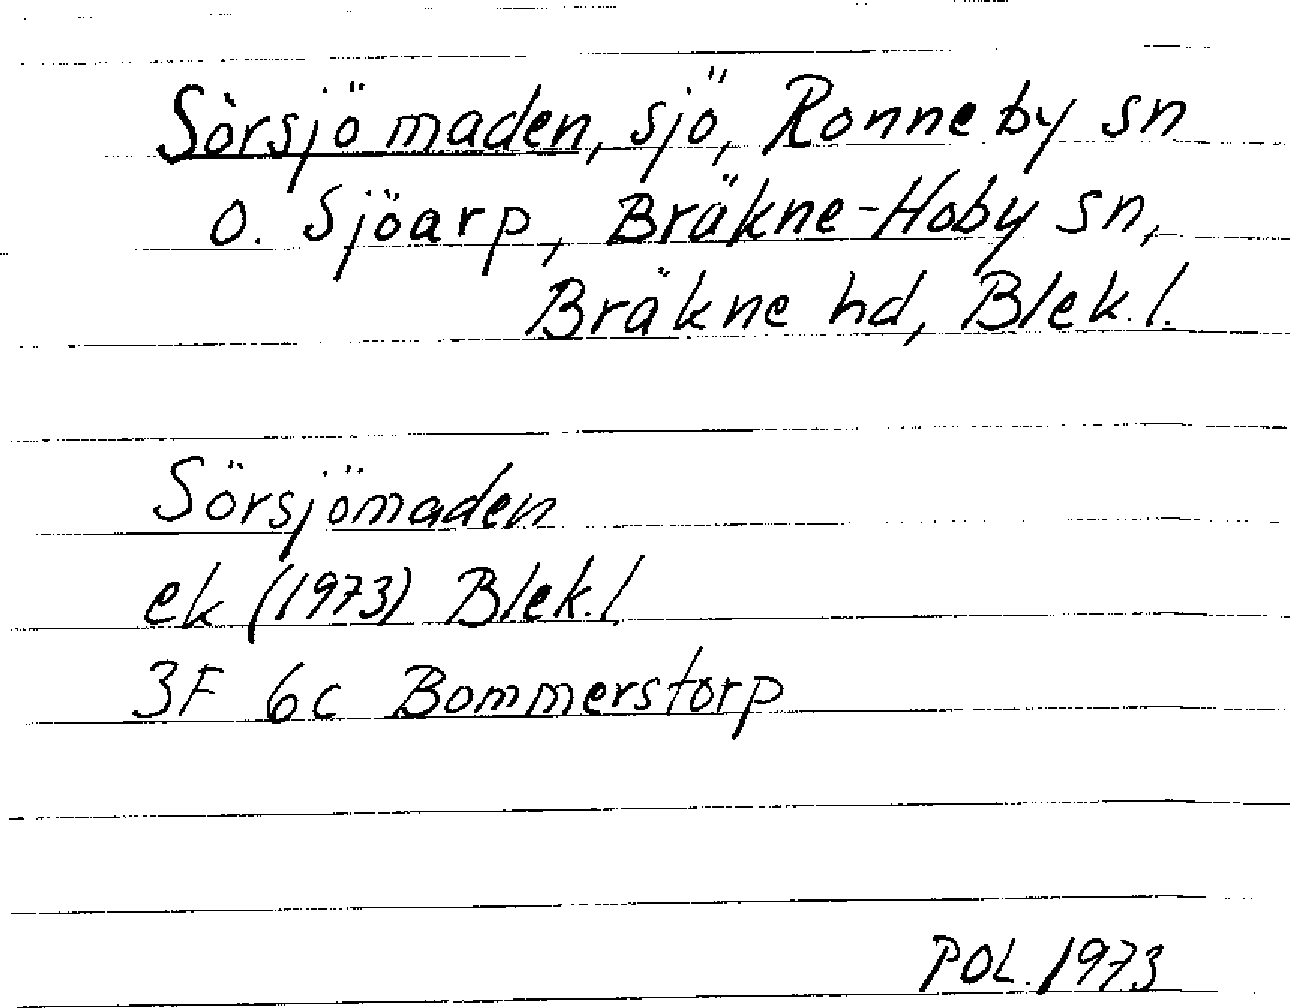 Sörsjömaden, sjö, Ronneby sn
o. Sjöarp, Bräkne-Hoby sn,
Bräkne hd, Blek.l.
Sörsjömaden
ek (1973) Blek.l.
3F 6c Bommerstorp
POL. 1973